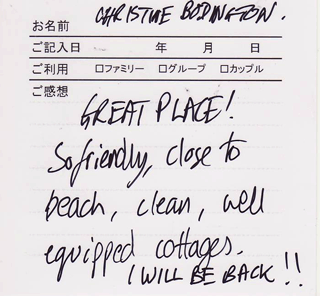 お名前 CHRISTINE BODINGTON.
ご記入日 年 月 日
ご利用 □ファミリー □グループ □カップル
ご感想
GREAT PLACE!
So friendly, close to
beach, clean, well
equipped cottages.
I WILL BE BACK!!